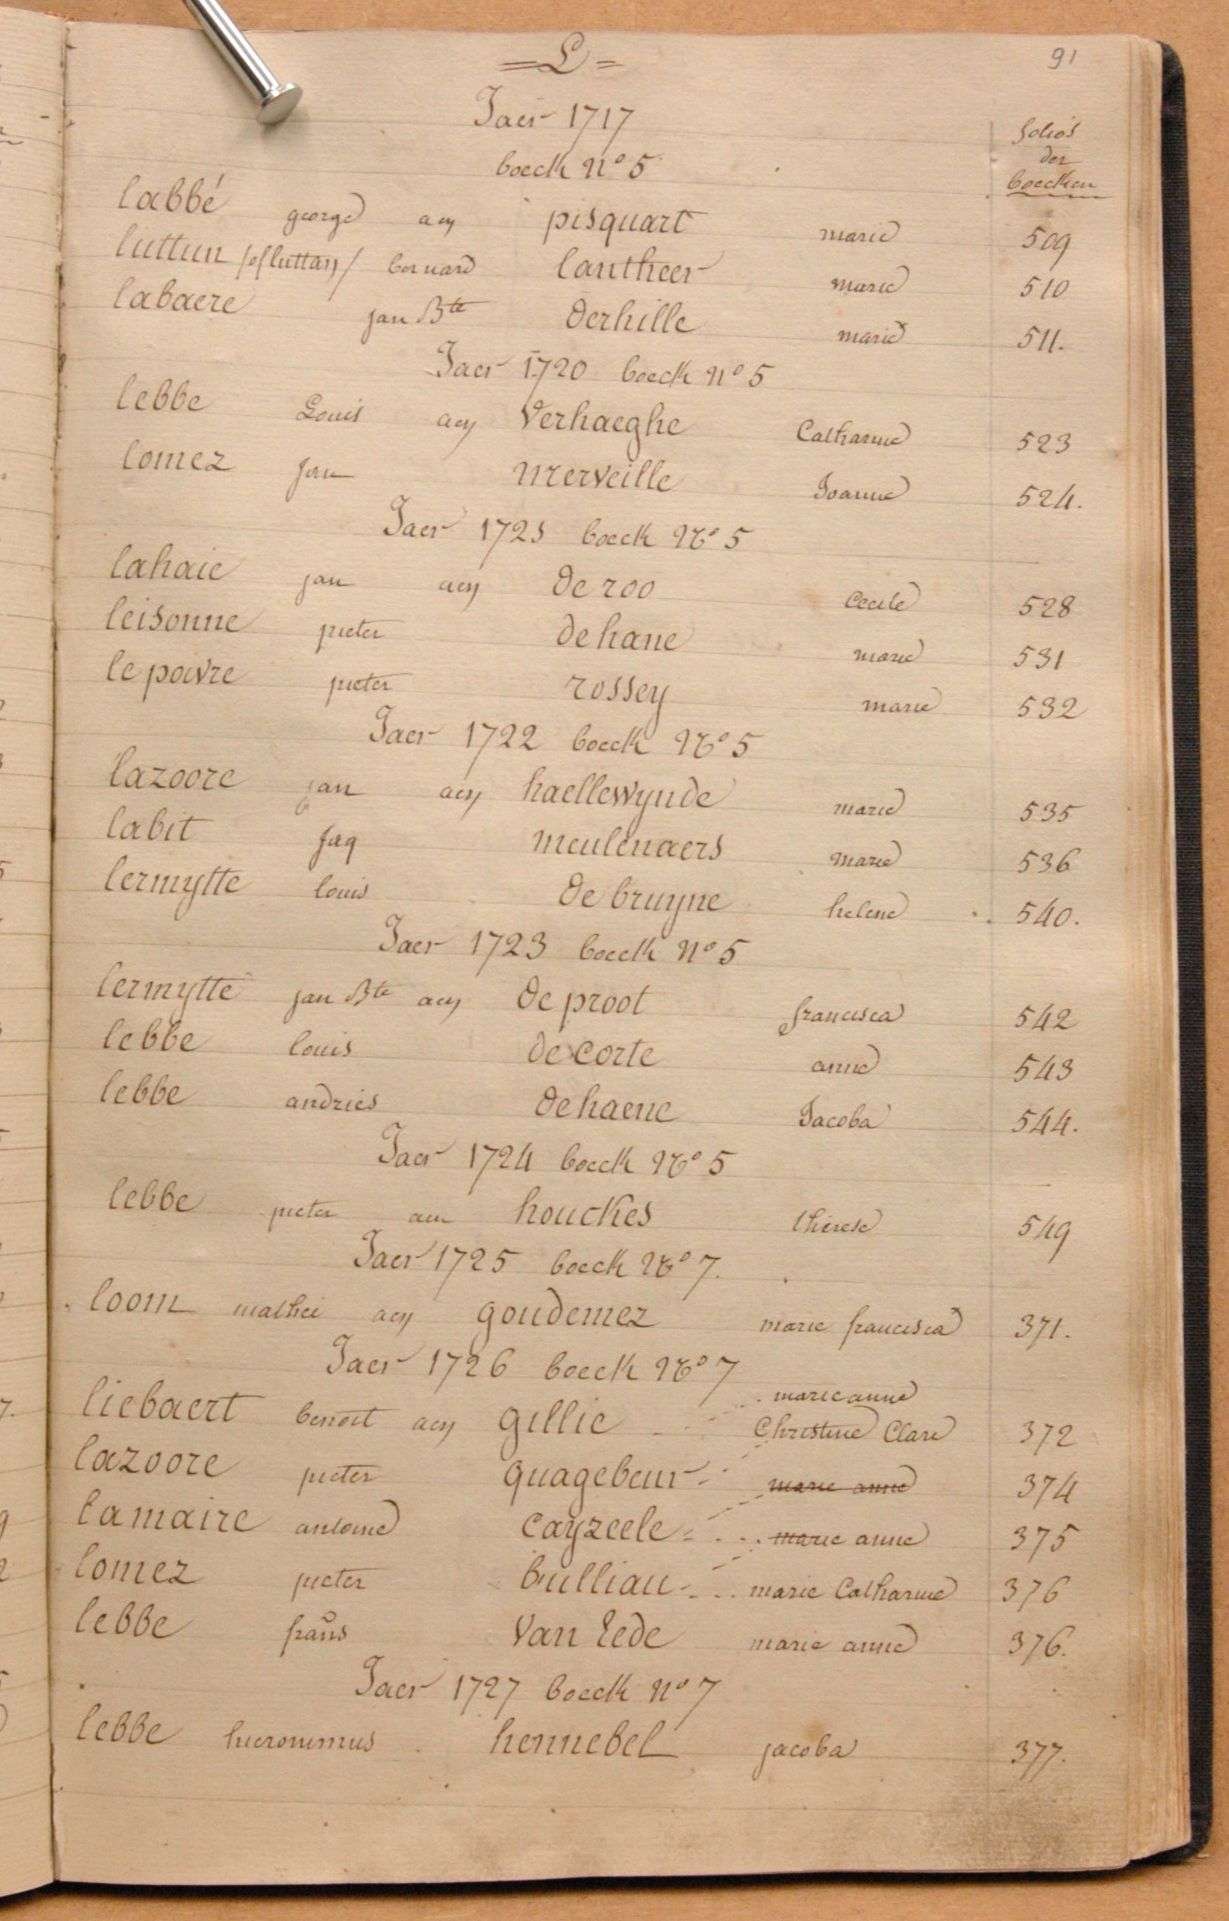 L
91
Jaer 1717
folio's
der
boecken
boeck No 5
labbé george aen pisquart marie 509
luttun /of luttan/ bernard lantheer marie 510
labaere jan Bte derhille marie 511.
Jaer 1720 boeck No 5
lebbe Louis aen Verhaeghe Catharine 523
lomez jan merveille Joanne 524.
Jaer 1721 boeck No 5
lahaie jan aen de roo Cecile 528
leisonne pieter dehane marie 531
le poivre pieter rossey marie 532
Jaer 1722 boeck No 5
lazoore jan aen haellewynde marie 535
labit jaq meulenaers marie 536
lermytte louis de bruyne helene 540.
Jaer 1723 boeck No 5
lermytte jan Bte aen de proot francisca 542
lebbe louis de corte anne 543
lebbe andries dehaene Jacoba 544.
Jaer 1724 boeck No 5
lebbe pieter aen houckes therese 549
Jaer 1725 boeck No 7.
loom mathei aen goudemez marie francisca 371.
Jaer 1726 boeck No 7
marie anne
liebaert benoit aen gillie Christine Clare 372
lazoore pieter quagebeur marie anne 374
lamaire antoine Cayzeele marie anne 375
lomez pieter bulliau marie Catharine 376
lebbe frans Van lede marie anne 376.
Jaer 1727 boeck No 7
lebbe hieronimus hennebel jacoba 377.